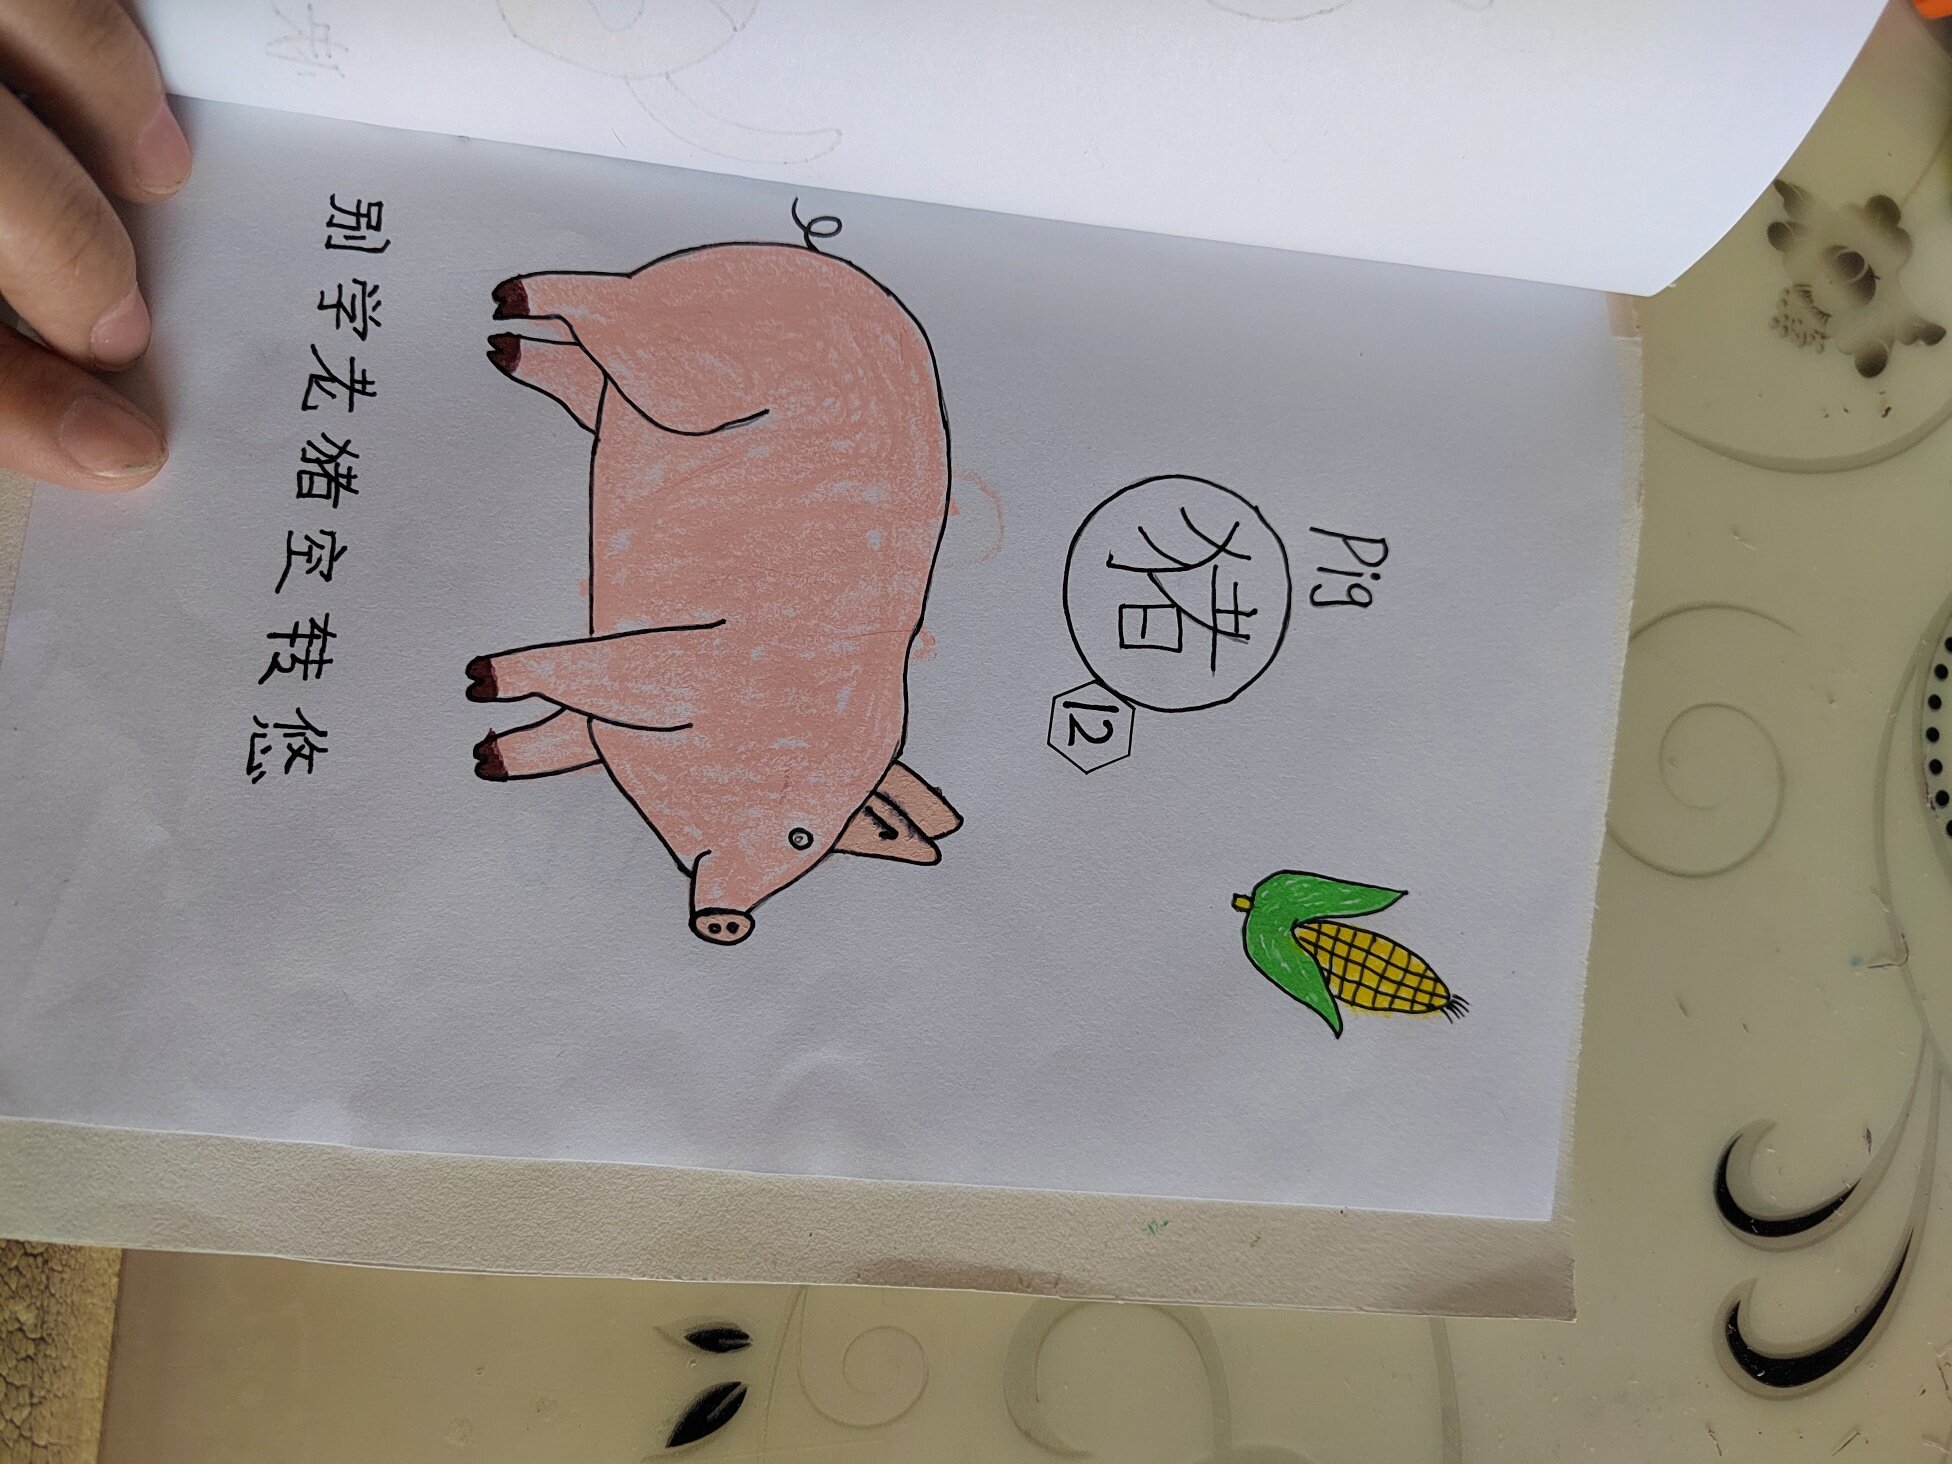 Pig
猪
12
别学老猪空转悠